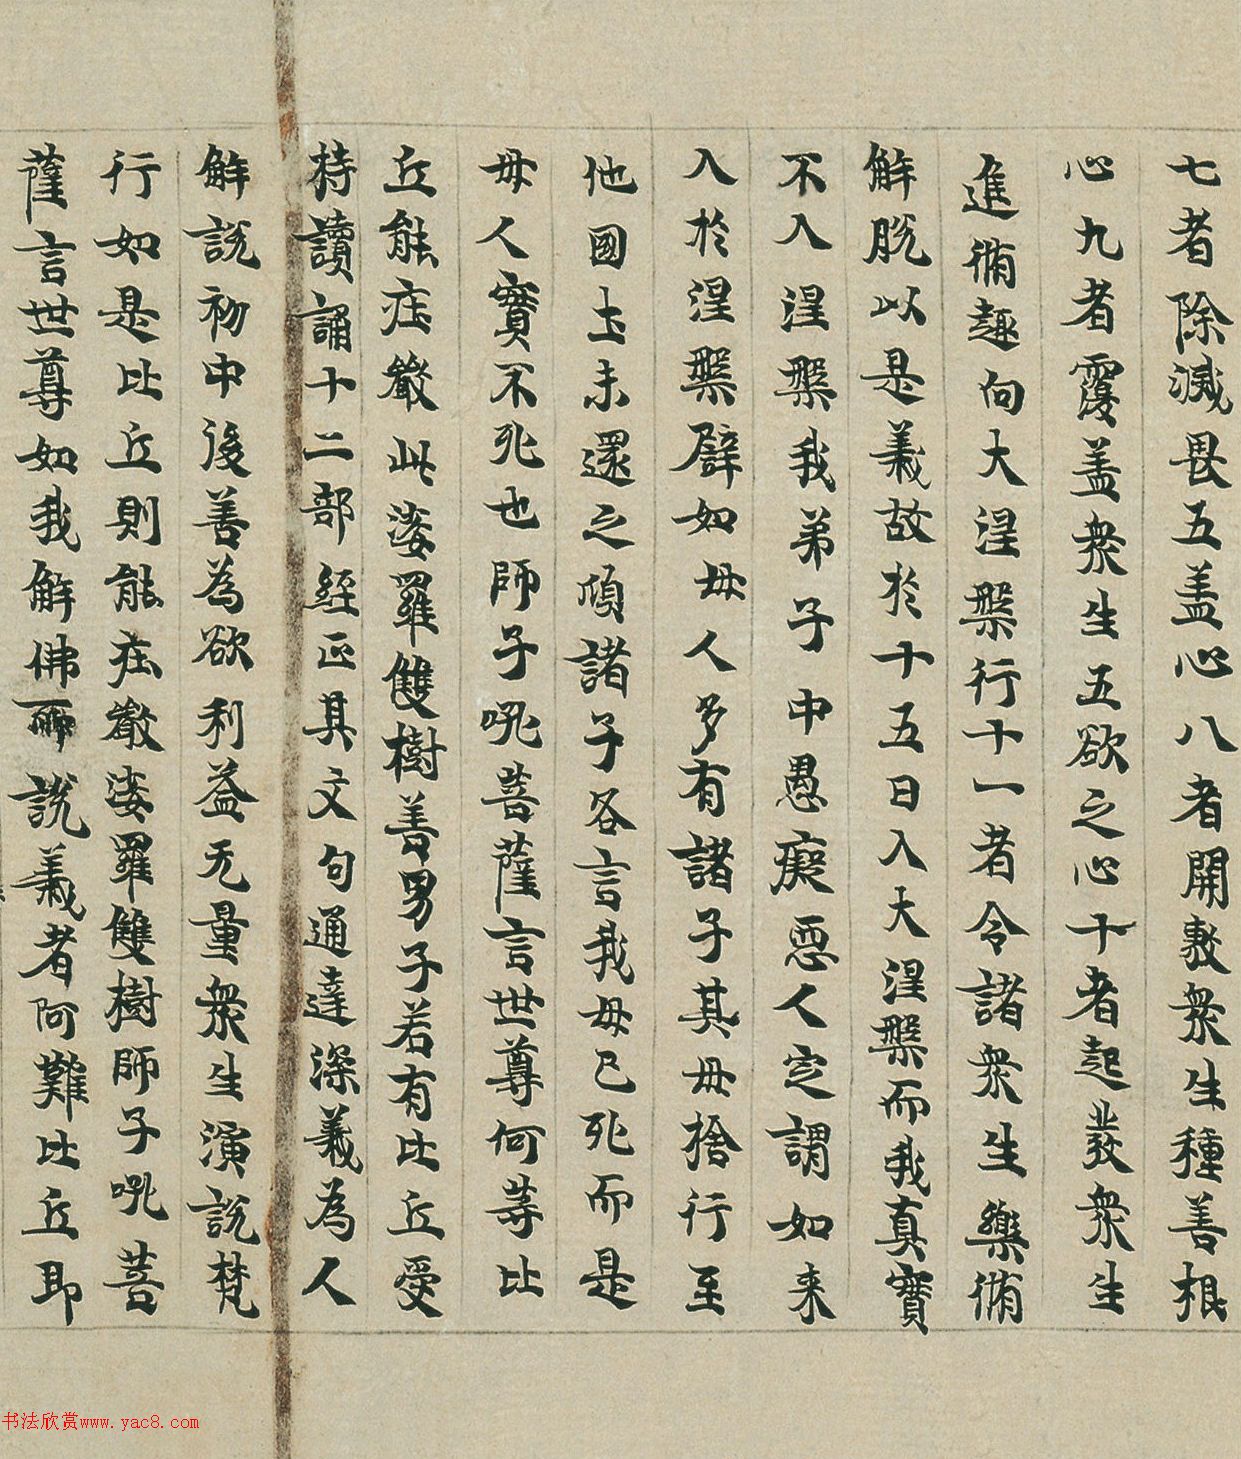 七者除滅畏五盖心八者開敷衆生種善根
心九者覆盖衆生五欲之心十者起發衆生
進脩趣向大涅槃行十一者令諸衆生樂脩
解脫以是義故於十五日入大涅槃而我真實
不入涅槃我弟子中愚癡惡人定謂如来
入於涅槃譬如母人多有諸子其母捨行至
他國土未還之頃諸子各言我母已死而是
母人實不死也師子吼菩薩言世尊何等比
丘能庄嚴此娑羅雙樹善男子若有比丘受
持讀誦十二部經正其文句通達深義為人
解說初中後善為欲利益无量衆生演說梵
行如是比丘則能庄嚴娑羅雙樹師子吼菩
薩言世尊如我解佛所說義者阿難比丘即
书法欣赏www.yac8.com